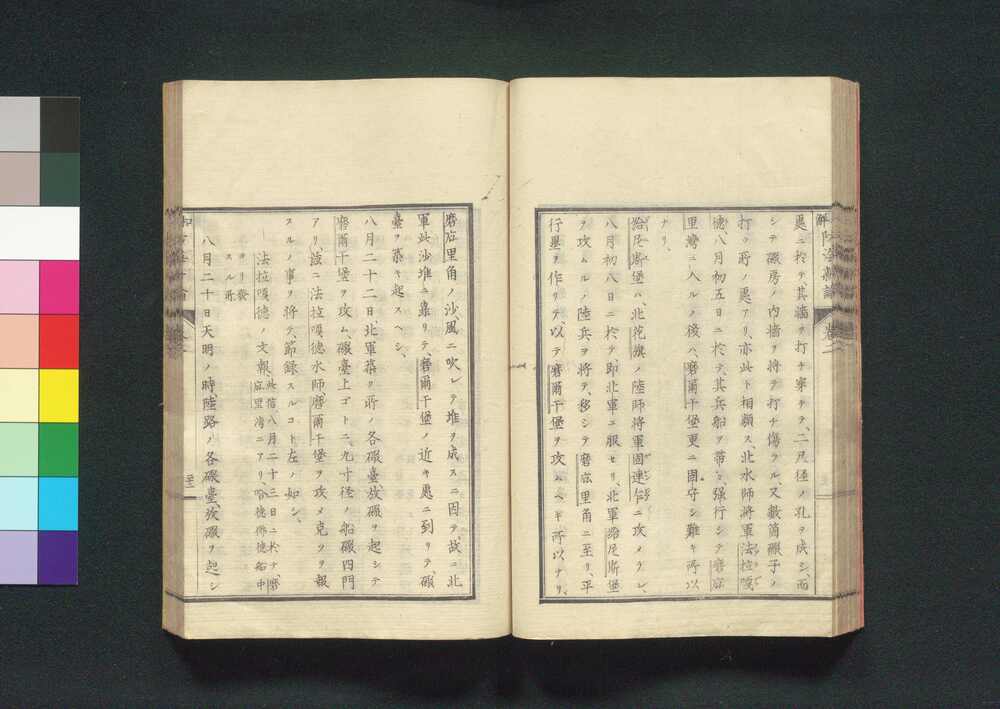 處ニ於テ、其牆ヲ打チ穿チテ、二尺徑ノ孔ヲ成シ、而
シテ礮房ノ内牆ヲ將テ打チ傷ラル、又數箇礮子ノ
打ツ所ノ處アリ、亦此ト相類ス、北水師將軍法拉嘎
德八月初五日ニ於テ、其兵船ヲ帶テ強行シテ磨庇
里灣ニ入ルノ後ハ、磨爾干堡更ニ固守シ難キ所以
ナリ、
給尼斯堡ハ、北花旗ノ陸師將軍固連ニ攻メラレ、
八月初八日ニ於テ、即北軍ニ服セリ、北軍給尼斯堡
ヲ攻ムルノ陸兵ヲ將テ、移シテ磨庇里角ニ至リ、平
行壘ヲ作リテ、以テ磨爾干堡ヲ攻ムベキ所以ナリ、
磨庇里角ノ沙、風ニ吹レテ堆ヲ成スニ因テ、故ニ北
軍此沙堆ニ靠リテ、磨爾干堡ノ近キ處ニ到リテ、礮
臺ヲ築キ起スヘシ、
八月二十二日北軍築ク所ノ各礮臺、放礮ヲ起シテ
磨爾干堡ヲ攻ム、礮臺上ゴトニ、九寸徑ノ船礮四門
アリ、茲ニ法拉嘎德水師磨爾干堡ヲ攻メ克ツヲ報
スルノ事ヲ將テ、節録スルコト左ノ如シ、
法拉嘎德ノ文報、此信八月二十三日ニ於テ、磨
庇里海ニアリ、哈德佛德船中
ヨリ發
スル所
八月二十日天明ノ時、陸路ノ各礮臺、放礮ヲ起シ